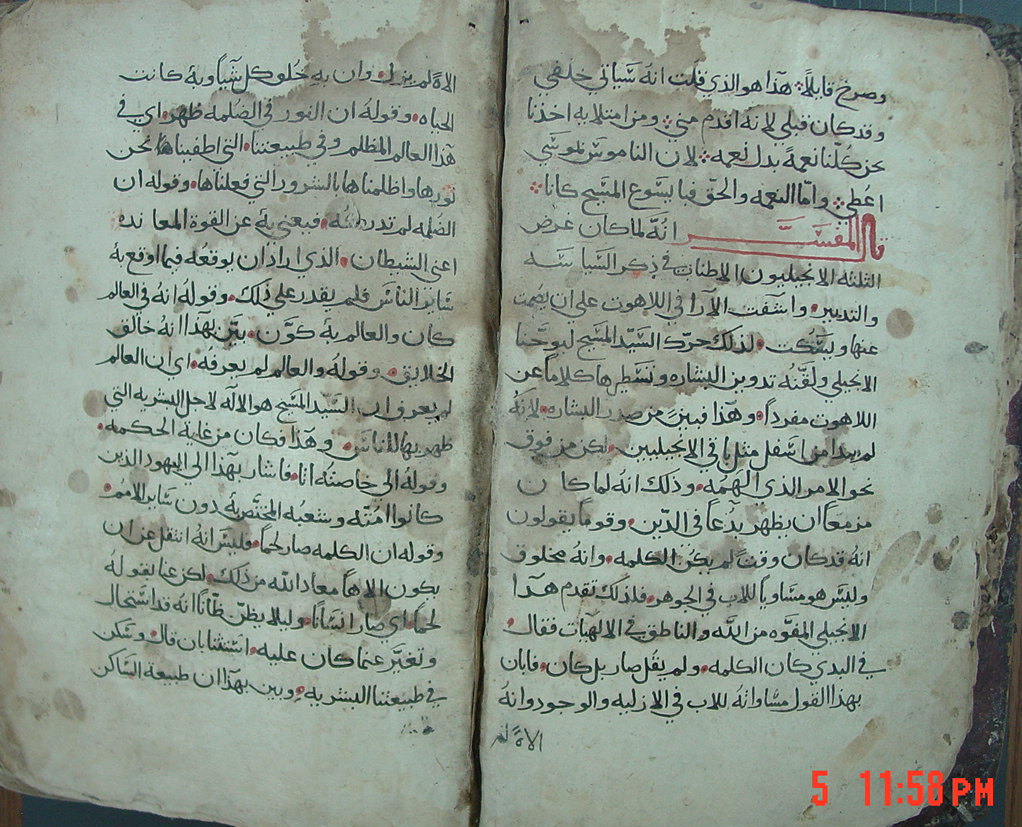 وصرخ قايلاً هذا هو الذي قلت انه سياتي خلفي
وقد كان قبلي لانه اقدم مني ومن امتلايه اخذنا
نحن كلنا نعمةً بدل نعمه لان الناموس بموسى
اعطي واما النعمه والحق فبايسوع المسيح كانا
قال المفسر انه لما كان غرض
الثلثه الانجيليون الاطناب في ذكر السياسه
والتدبير واشفت الآرا في اللاهوت على ان يصمت
عنها ويسكت لذلك حرك السيد المسيح ليوحنا
الانجيلي ولقنه تدوين البشاره وتسطيرها كلاماً عن
اللاهوت مفرداً وهذا فبين من صدر البشاره لانه
لم يبدا من اسفل مثل باقي الانجيليين لكن من فوق
نحو الامر الذي الهمه وذلك انه لما كان
مزمعاً ان يظهر بدعاً في الدين وقوماً يقولون
انه قد كان وقت لم يكن الكلمه وانه مخلوق
وليس هو مساوياً للاب في الجوهر فلذلك تقدم هذا
الانجيلي المفوه من الله والناطق في الالهيات فقال
في البدي كان الكلمه ولم يقل صار بل كان فابان
بهذا القول مساواته للاب في الازليه والوجود وانه
الاهً لم
الاهً لم يزل وان به خلق كل شياً وبه كانت
الحياه وقوله ان النور في الظلمه ظهر اي في
هذا العالم المظلم وفي طبيعتنا التي اطفيناها نحن
نورها واظلمناها بالشرور التي فعلناها وقوله ان
الظلمه لم تدركه فيعني به عن القوة المعانده
اعني الشيطان الذي اراد ان يوقعه فيما اوقع به
ساير الناس فلم يقدر على ذلك وقوله انه في العالم
كان والعالم به كوّن بيّن بهذا انه خالق
الخلايق وقوله والعالم لم يعرفه اي ان العالم
لم يعرفوا ان السيد المسيح هو الاله لاجل البشريه التي
ظهر بها للناس وهذا فكان من غاية الحكمه
وقوله الى خاصته اتا فاشار بهذا الى اليهود الذين
كانوا امته وشعبه المختص به دون ساير الامم
وقوله ان الكلمه صار لحماً فليس انه انتقل عن ان
يكون الاهاً معاذ الله من ذلك لكن عنا بقوله
لحماً اي صار انساناً وليلا يظن ظاناً انه قد استحال
وتغير عما كان عليه استثنا بان قال وسكن
في طبيعتنا البشريه وبين بهذا ان طبيعة الساكن
5 11:58 PM